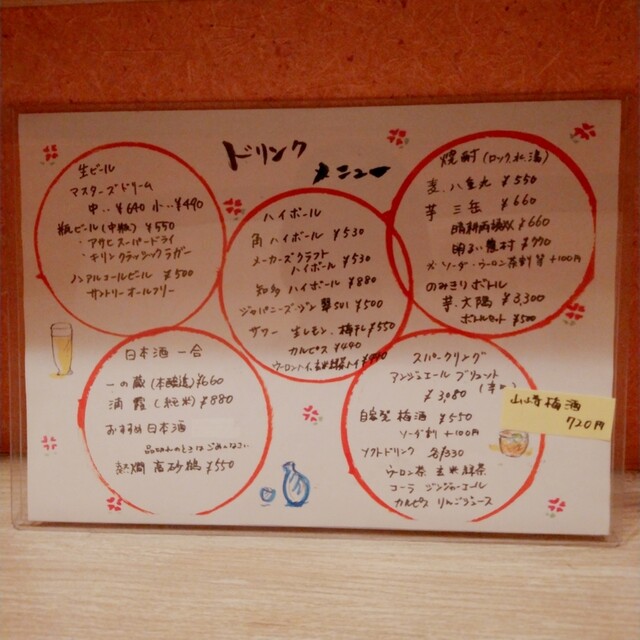 ドリンク
メニュー
生ビール
マスターズドリーム
中‥¥640 小‥¥490
瓶ビール(中瓶) ¥550
・アサヒスーパードライ
・キリンクラッシックラガー
ノンアルコールビール ¥500
サントリーオールフリー
ハイボール
角ハイボール ¥530
メーカーズクラフト
ハイボール ¥530
知多ハイボール ¥880
ジャパニーズ・ジン 翠SOUI ¥500
サワー 生レモン、梅干し ¥550
カルピス ¥490
ウーロンハイ、玄米緑茶ハイ
焼酎(ロック、水、湯)
麦 八重丸 ¥550
芋 三岳 ¥660
¥660
明るい農村 ¥770
※ソーダ・ウーロン茶割等+100円
のみきりボトル
芋・大隅 ¥3,300
ボトルセット ¥500
日本酒 一合
一の蔵(本醸造) ¥660
浦霞(純米) ¥880
おすすめ日本酒
品切れのときはごめんなさい
熱燗 高砂鶴 ¥550
スパークリング
アンジュエール ブリュット
¥3,080
梅酒 ¥550
ソーダ割 +100円
ソフトドリンク 各/330
ウーロン茶 玄米緑茶
コーラ ジンジャーエール
カルピス りんごジュース
山崎梅酒
720円